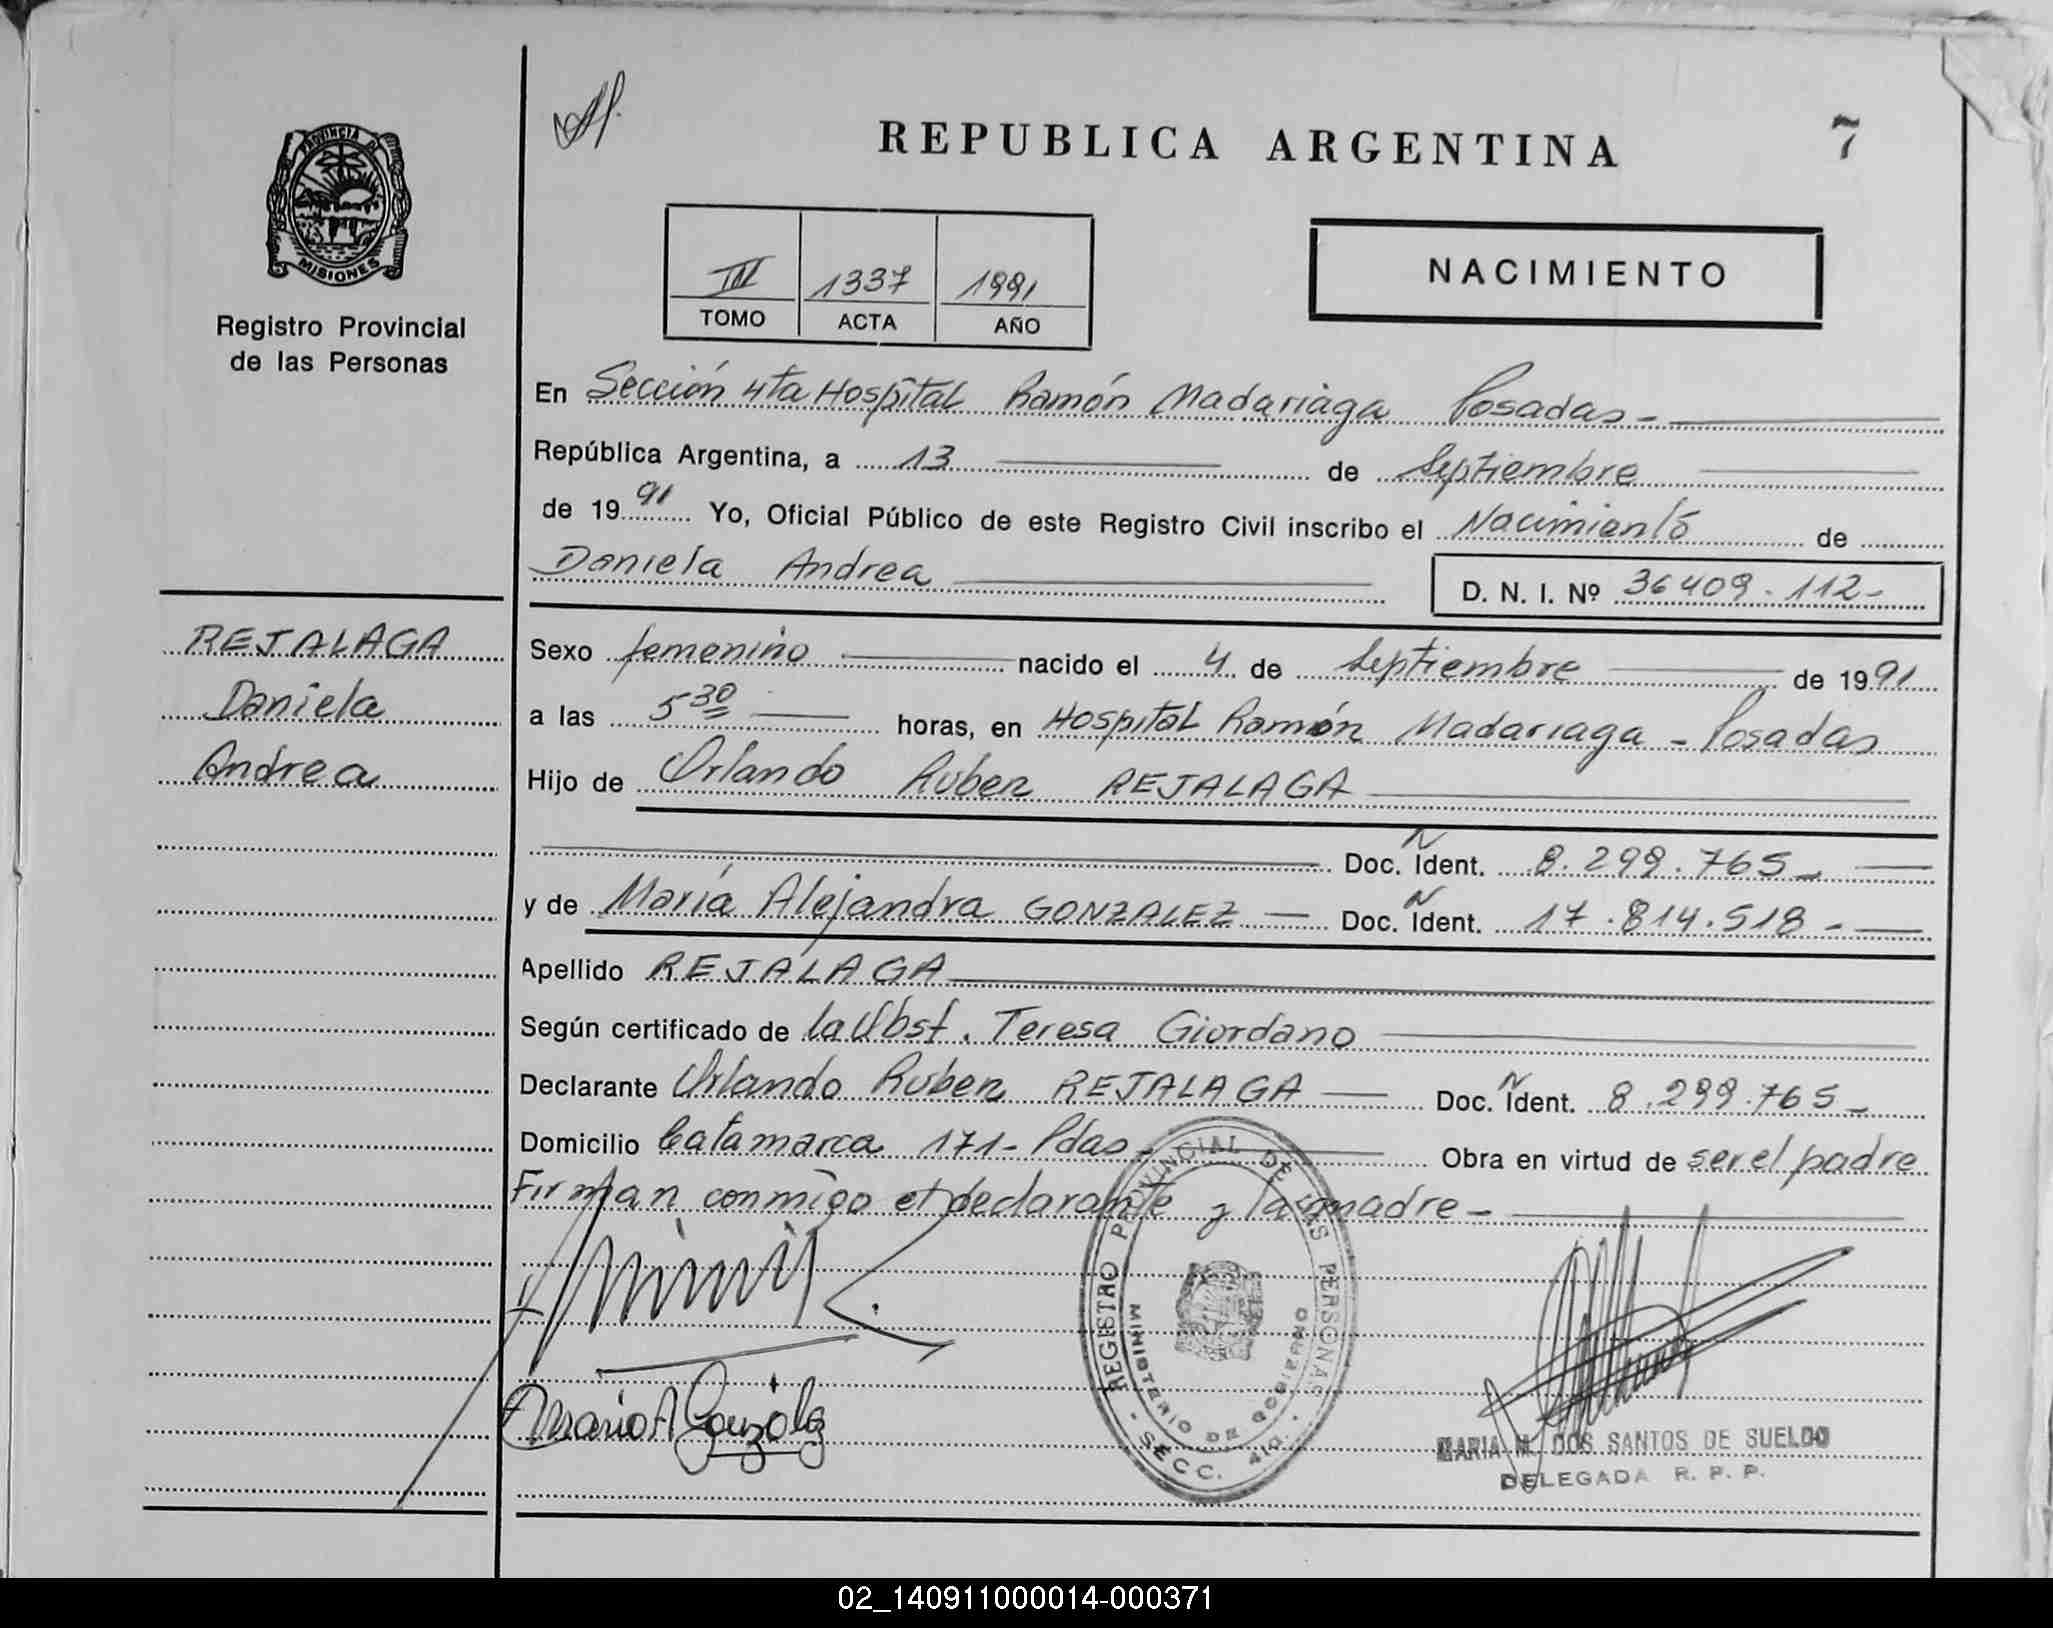 REPUBLICA ARGENTINA
7
PROVINCIA DE
MISIONES
Registro Provincial
de las Personas
III 1337 1991
TOMO ACTA AÑO
NACIMIENTO
En Sección 4ta Hospital Ramón Madariaga Posadas-
República Argentina, a 13 de Septiembre
de 1991 Yo, Oficial Público de este Registro Civil inscribo el Nacimiento de
Daniela Andrea
D. N. I. Nº 36409.112-
REJALAGA
Daniela
Andrea
Sexo femenino nacido el 4 de Septiembre de 1991
a las 5 30 horas, en Hospital Ramón Madariaga - Posadas
Hijo de Orlando Ruben REJALAGA
Doc. Ident. 8.299.765-
y de María Alejandra GONZALEZ - Doc. Ident. 17.814.518-
Apellido REJALAGA
Según certificado de la Obst. Teresa Giordano
Declarante Orlando Ruben REJALAGA Doc. Ident. 8.299.765-
Domicilio Catamarca 171- Pdas- Obra en virtud de ser el padre
Firman conmigo el declarante y la madre-
REGISTRO PROVINCIAL DE LAS PERSONAS
MINISTERIO DE GOBIERNO
- SECC. 4ta. -
Maria A Gonzalez
MARIA M. DOS SANTOS DE SUELDO
DELEGADA R. P. P.
02_140911000014-000371